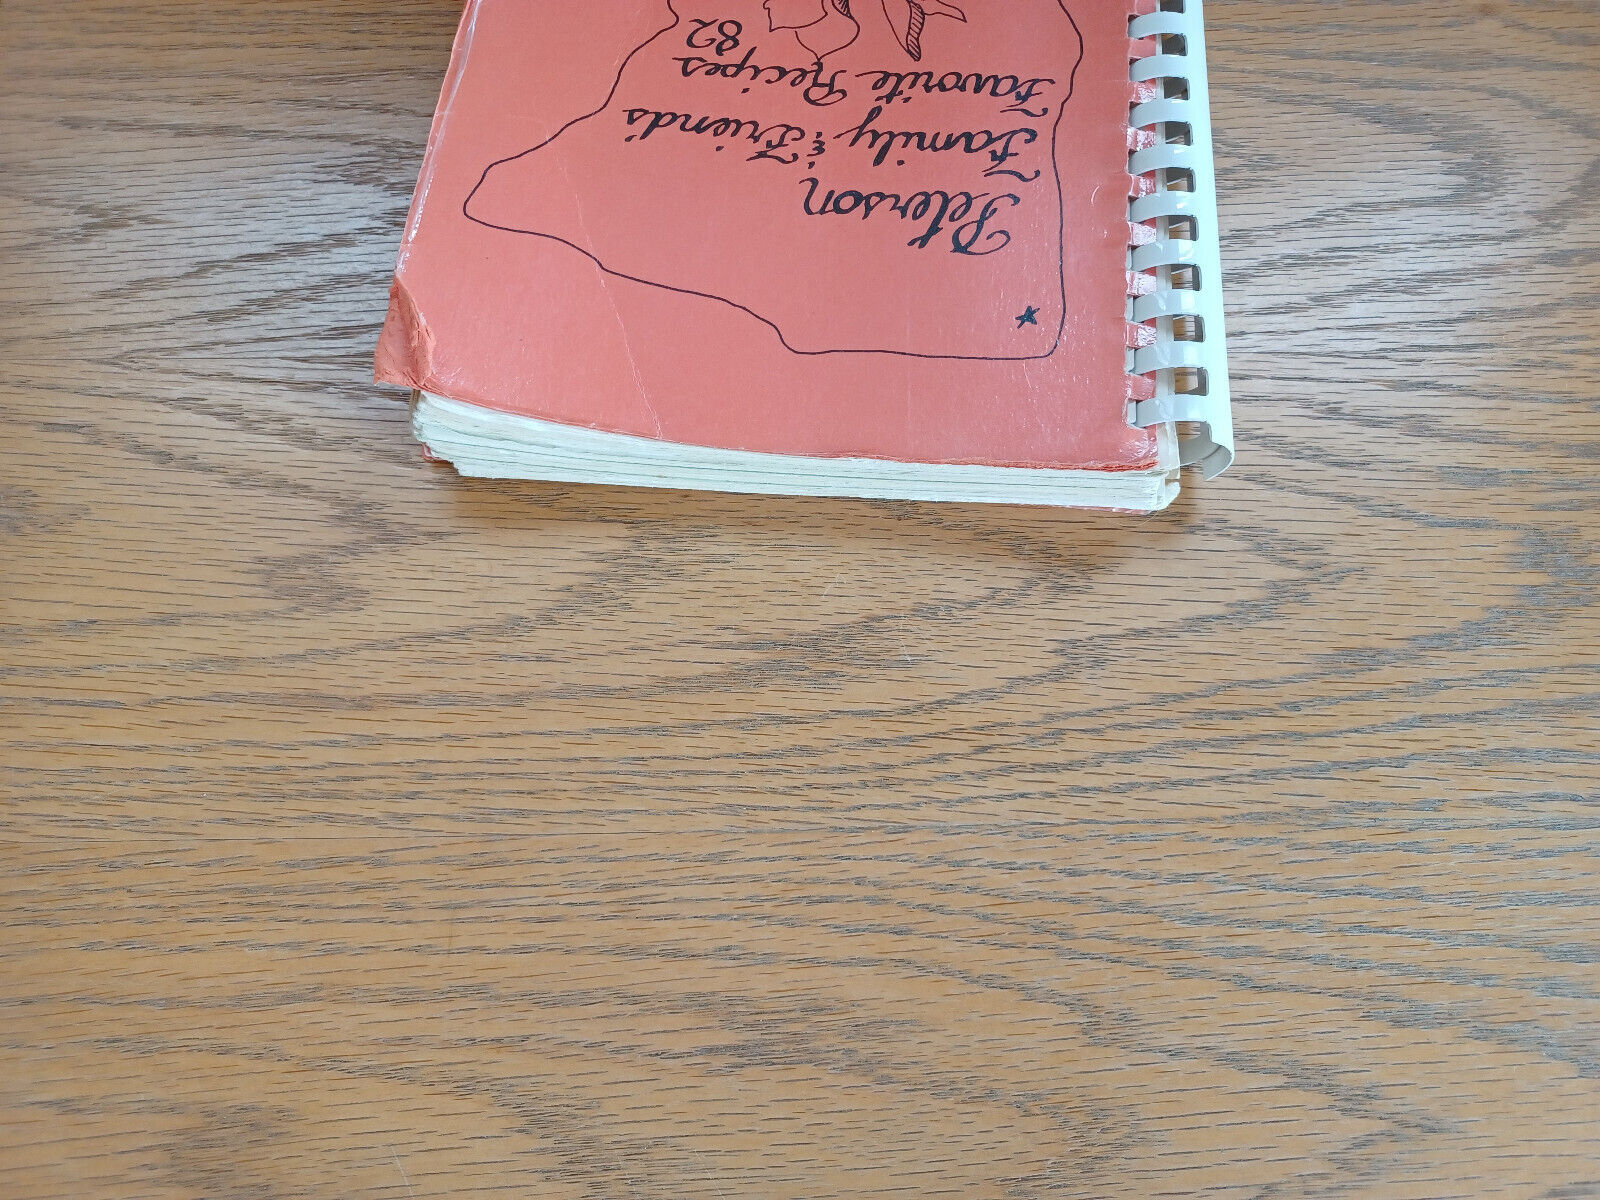 Peterson
Family & Friends
Favorite Recipes
82